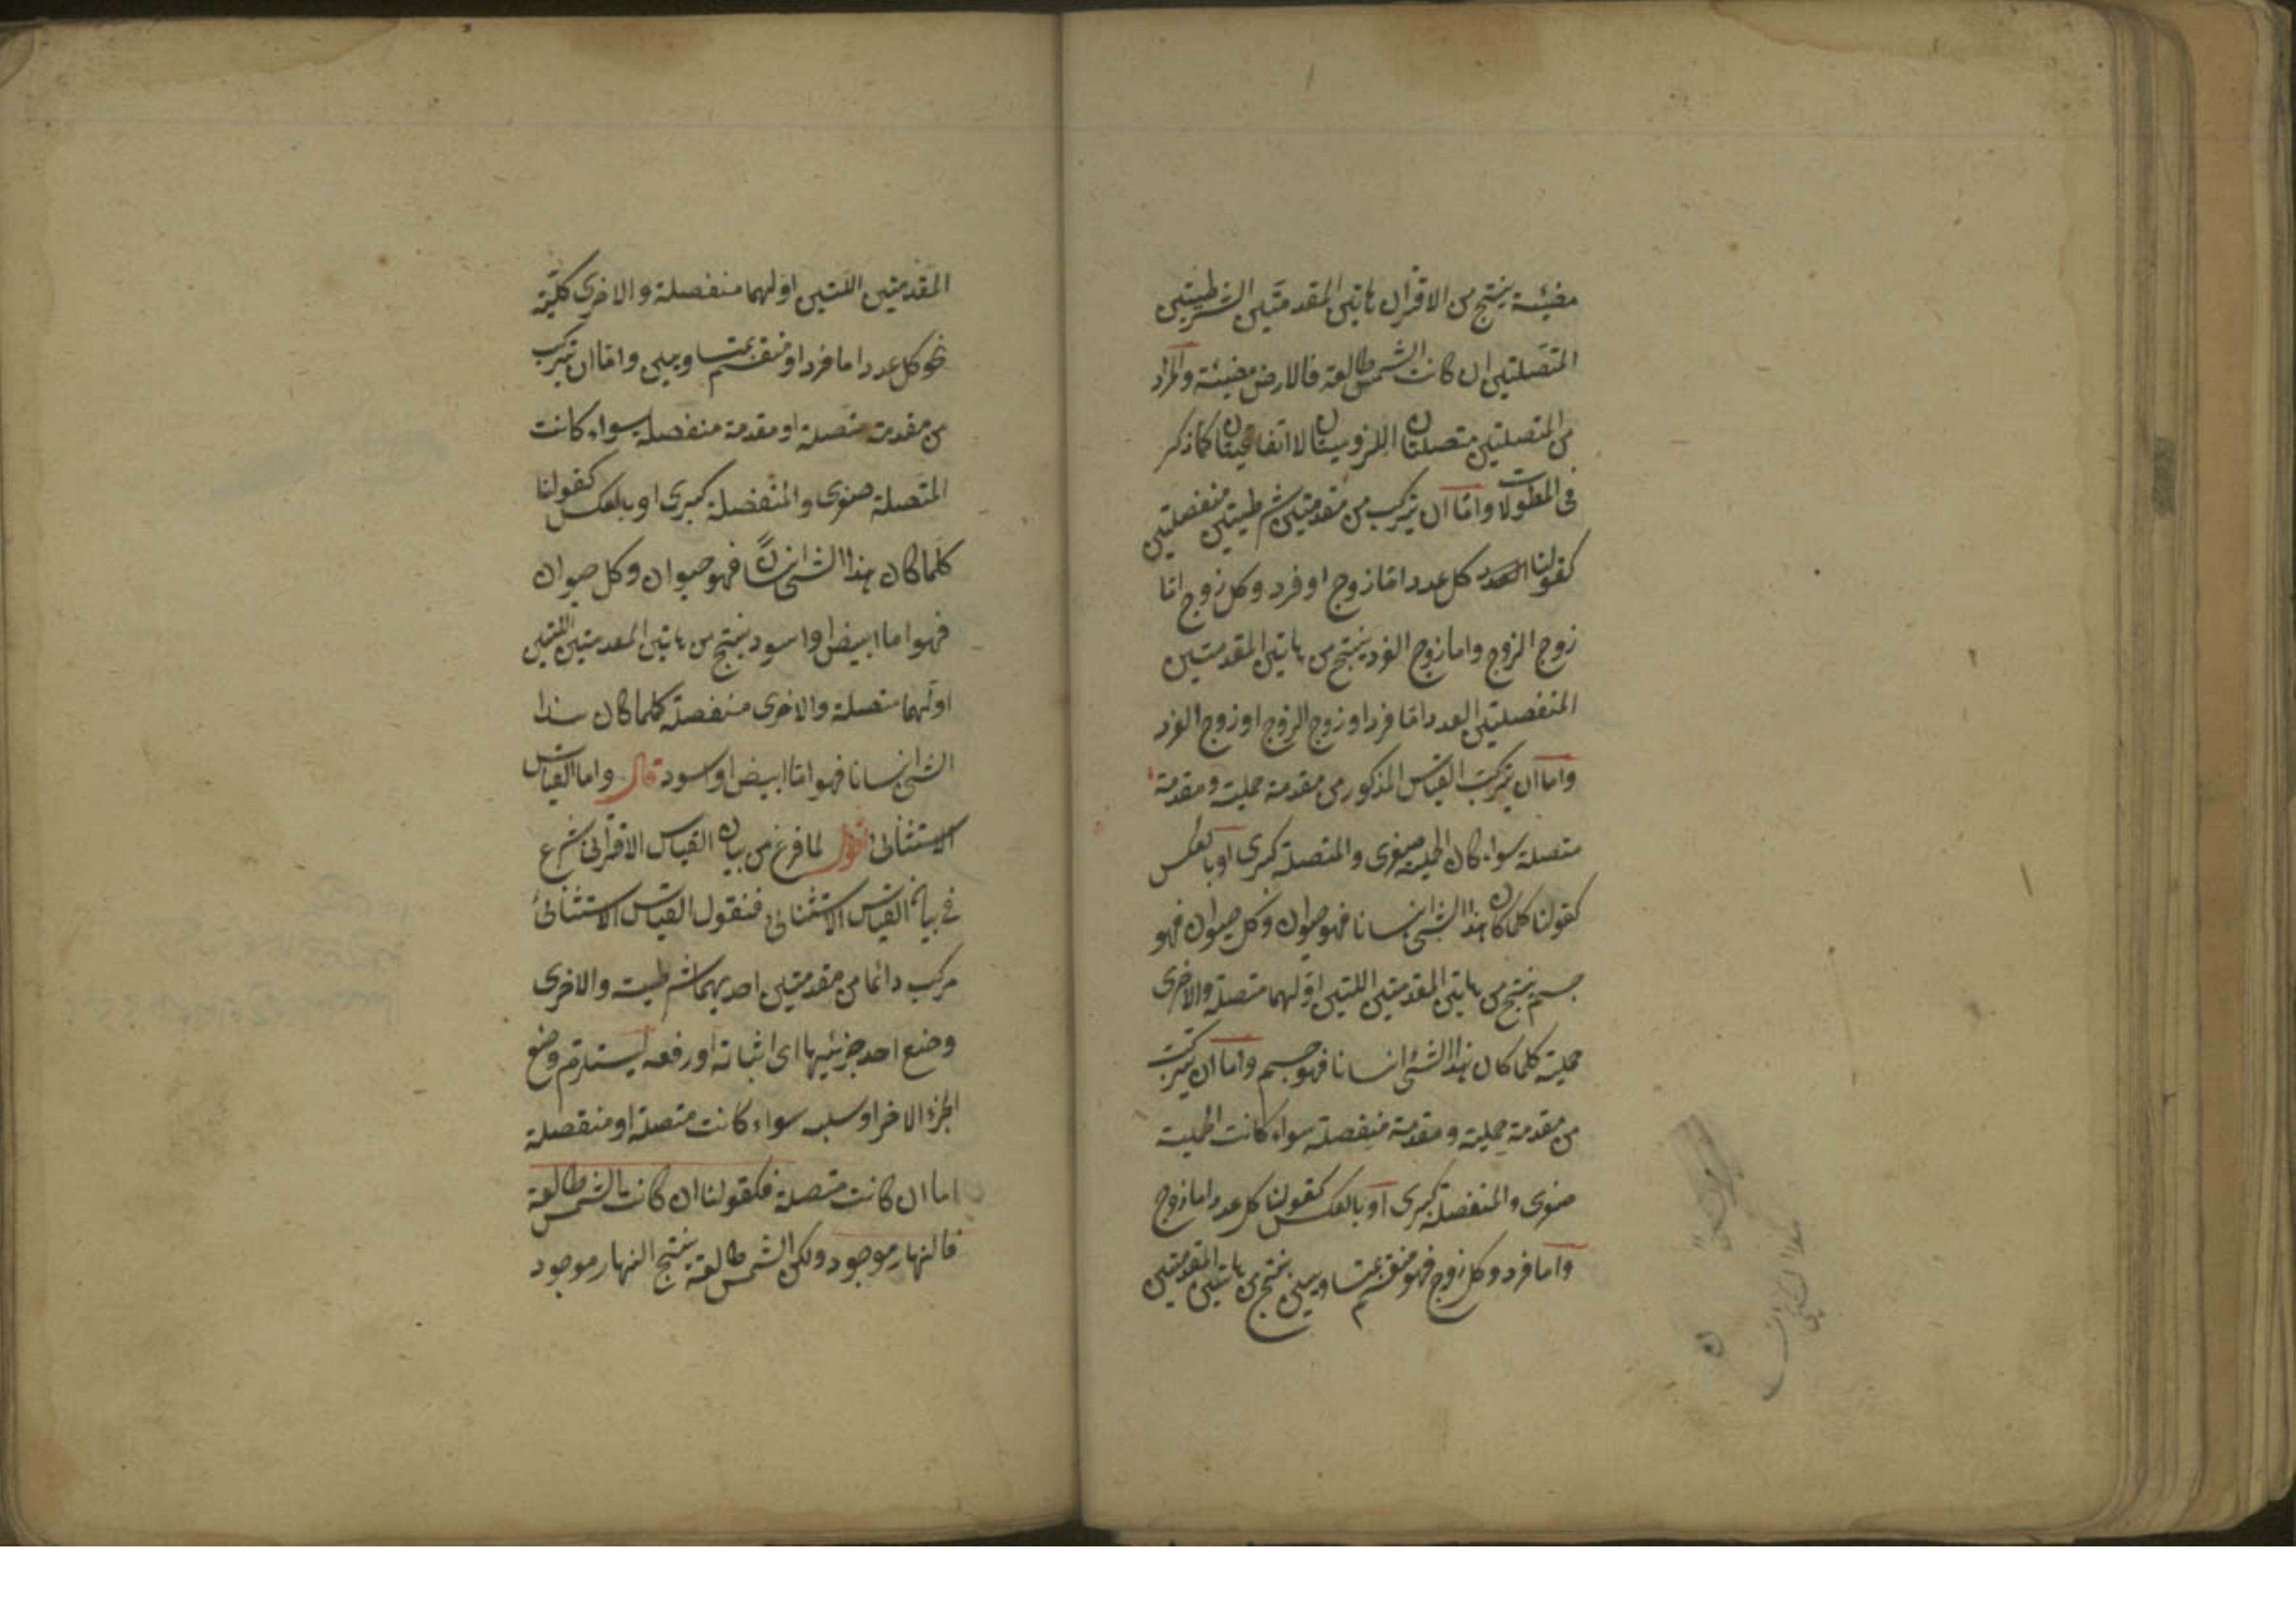 مضيئة ينتج من الاقتران هاتين المقدمتين الشرطيتين
المتصلتين ان كانت الشمس طالعة فالارض مضيئة والمراد
من المتصلتين متصلتان اللزوميتان لا اتفاقيتان كما ذكر
فى المطولات واما ان يتركب من مقدمتين شرطيتين منفصلتين
كقولنا كل عدد اما زوج او فرد وكل زوج اما
زوج الزوج واما زوج الفرد ينتج من هاتين المقدمتين
المنفصلتين العدد اما فرد او زوج الزوج او زوج الفرد
واما ان يتركب القياس المذكور من مقدمة حملية ومقدمة
متصلة سواء كان الحملية صغرى والمتصلة كبرى او بالعكس
كقولنا كلما كان هذا الشئ انسانا فهو حيوان وكل حيوان فهو
جسم ينتج من هاتين المقدمتين اللتين اولهما متصلة والاخرى
حملية كلما كان هذا الشئ انسانا فهو جسم واما ان يتركب
من مقدمة حملية ومقدمة منفصلة سواء كانت الحملية
صغرى والمنفصلة كبرى او بالعكس كقولنا كل عدد اما زوج
واما فرد وكل زوج فهو منقسم بمتساويين ينتج من هاتين المقدمتين
المقدمتين اللتين اولهما منفصلة والاخرى كلية
نحو كل عدد اما فرد او منقسم بمتساويين واما ان يتركب
من مقدمة متصلة او مقدمة منفصلة سواء كانت
المتصلة صغرى والمنفصلة كبرى او بالعكس كقولنا
كلما كان هذا الشئ انسانا فهو حيوان وكل حيوان
فهو اما ابيض او اسود ينتج من هاتين المقدمتين اللتين
اولهما متصلة والاخرى منفصلة كلما كان هذا
الشئ انسانا فهو اما ابيض او اسود قال واما القياس
الاستثنائى اقول لما فرغ من بيان القياس الاقترانى شرع
فى بيان القياس الاستثنائى فنقول القياس الاستثنائى
مركب دائما من مقدمتين احديهما شرطية والاخرى
وضع احد جزئيها اى اثباته او رفعه ليستلزم وضع
الجزء الاخر او سلبه سواء كانت متصلة او منفصلة
اما ان كانت متصلة فكقولنا ان كانت الشمس طالعة
فالنهار موجود ولكن الشمس طالعة ينتج النهار موجود